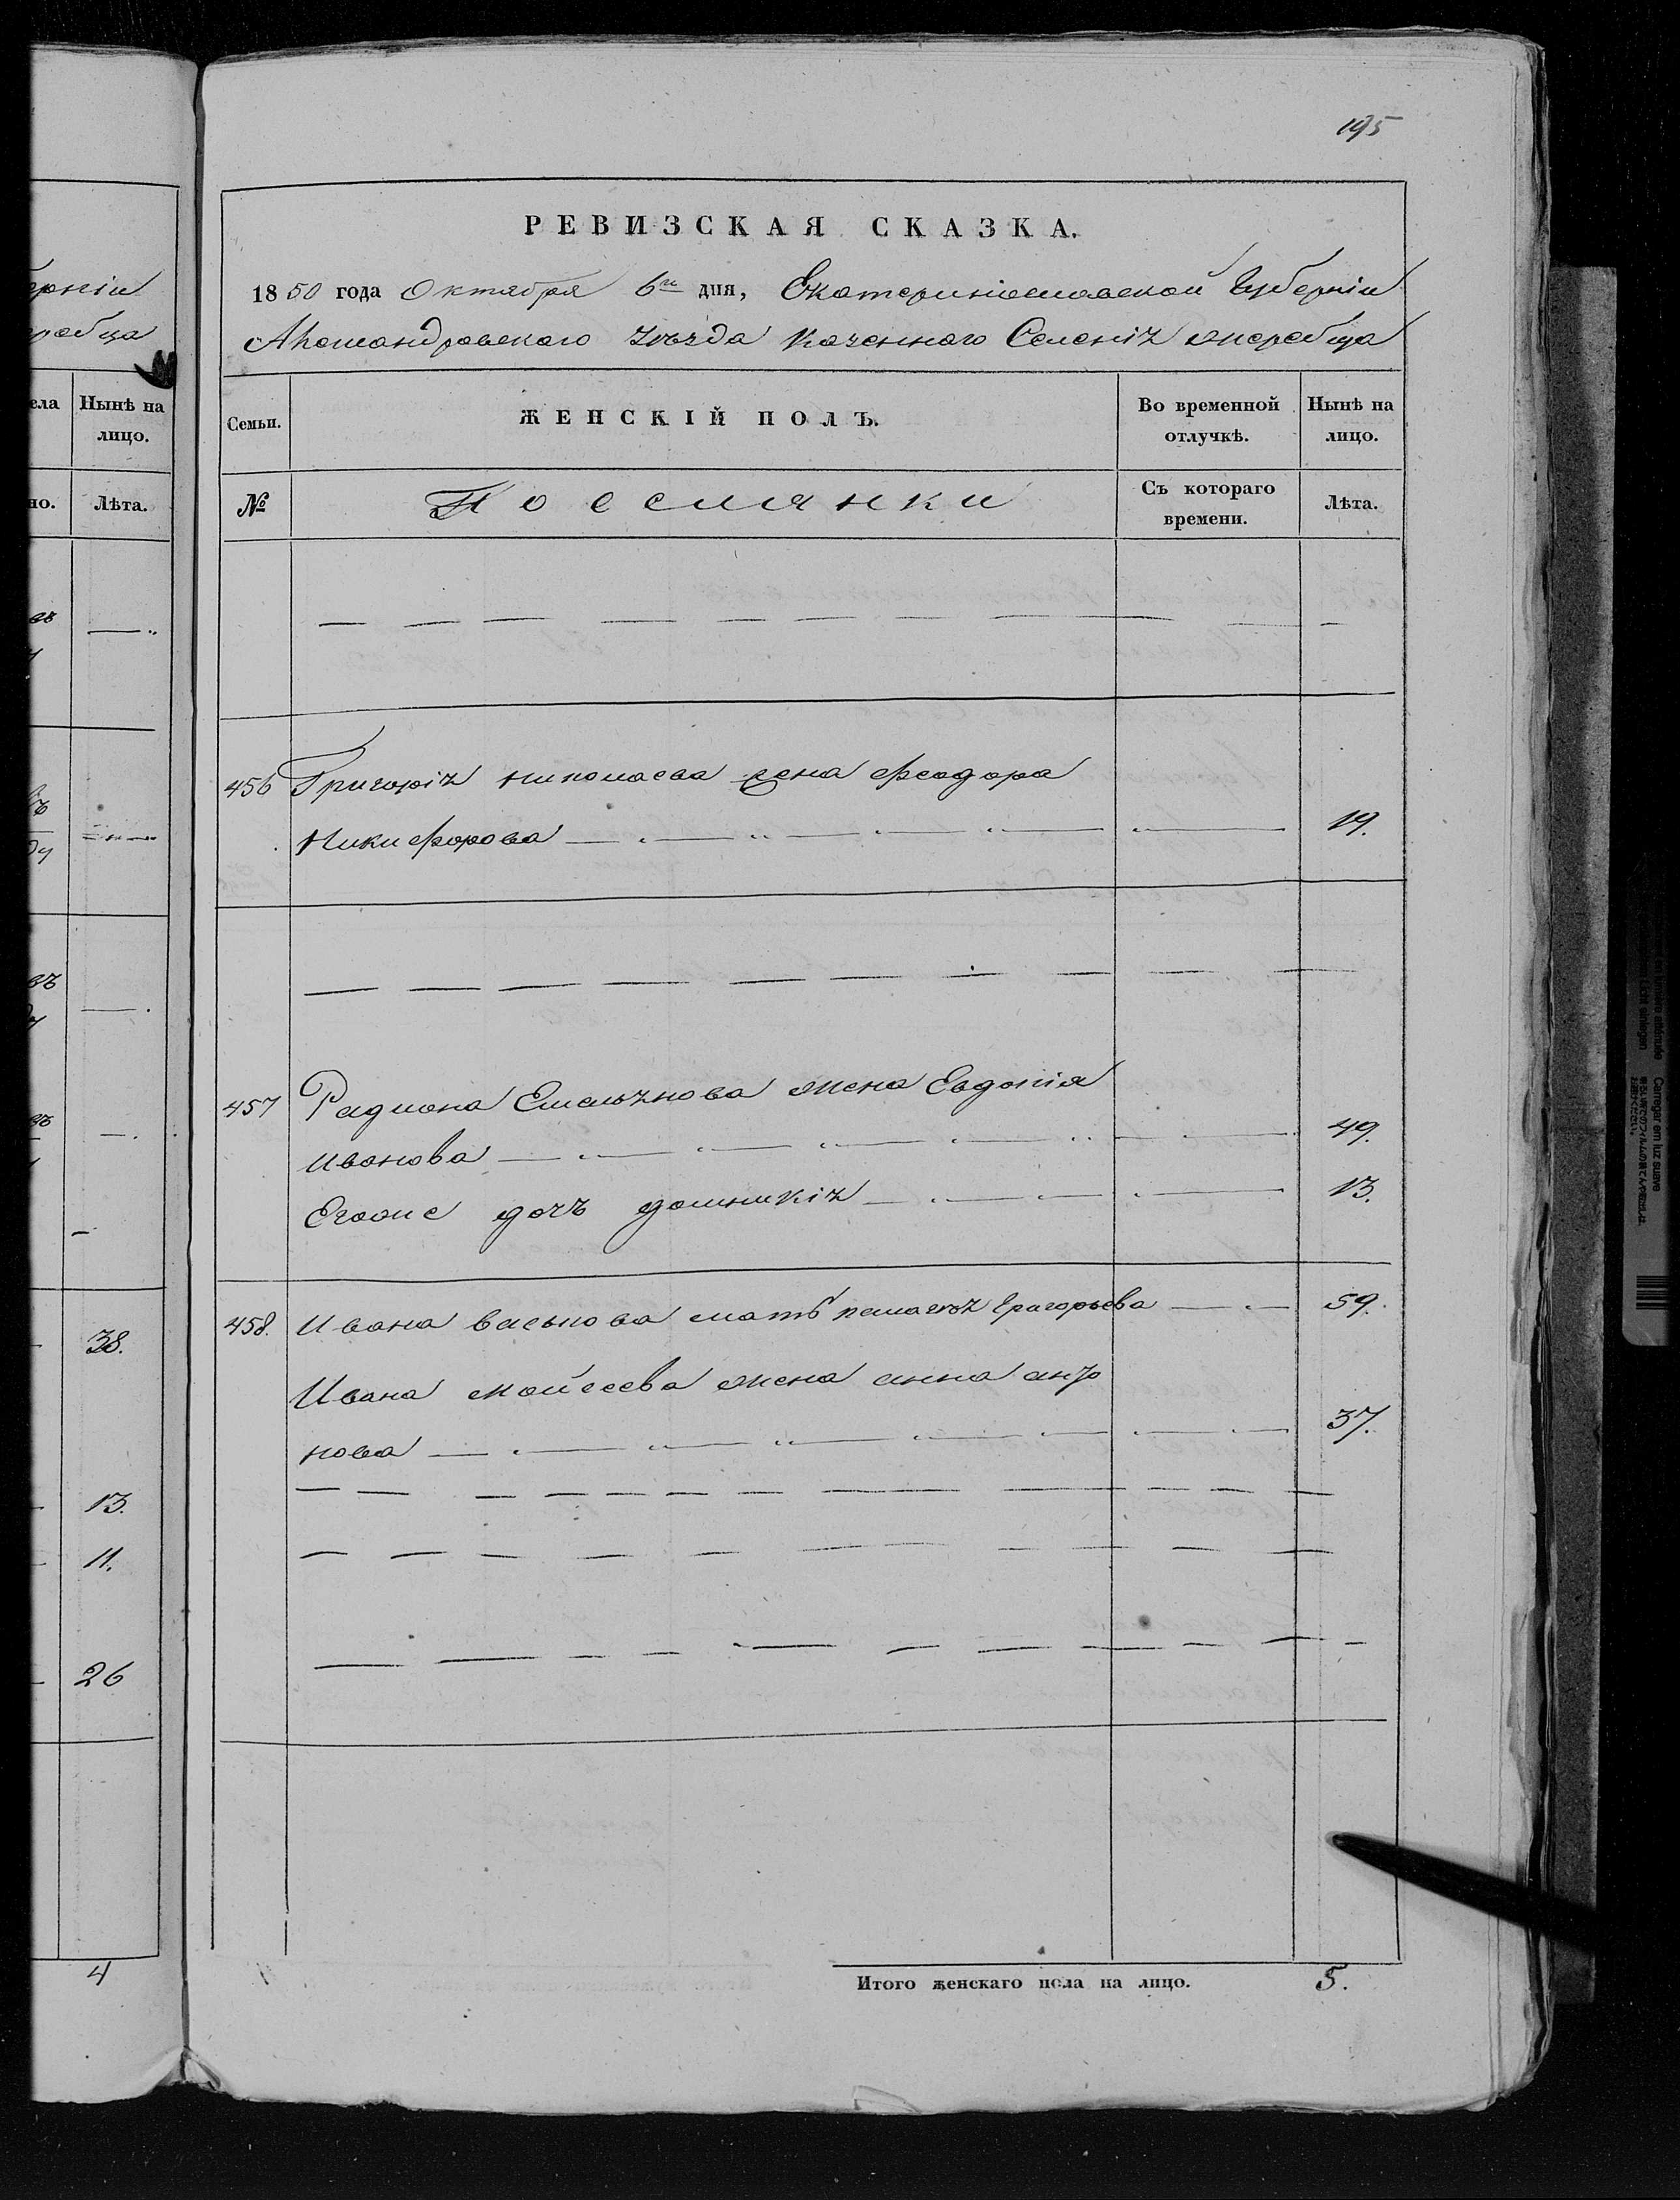 195
ерніи
ребца
РЕВИЗСКАЯ СКАЗКА.
1850 года Октября 6го дня, Екатеринославской Губерніи
Александровскаго уѣзда Казеннаго Селенія жеребца
ела
Нынѣ на
лицо.
но.
Лѣта.
38.
13.
11.
26
4
Семьи.
ЖЕНСКІЙ ПОЛЪ.
Во временной
отлучкѣ.
Нынѣ на
лицо.
№
Поселянки
Съ котораго
времени.
Лѣта.
456 Григорія николаева жена феодора
Никифорова 19.
457 Радиона Емельянова жена Евдокія
Иванова 49.
дочь 13.
458. Ивана мать Григорьева 59.
Ивана мойсеева жена анна
нова 37.
Итого женскаго пола на лицо. 5.